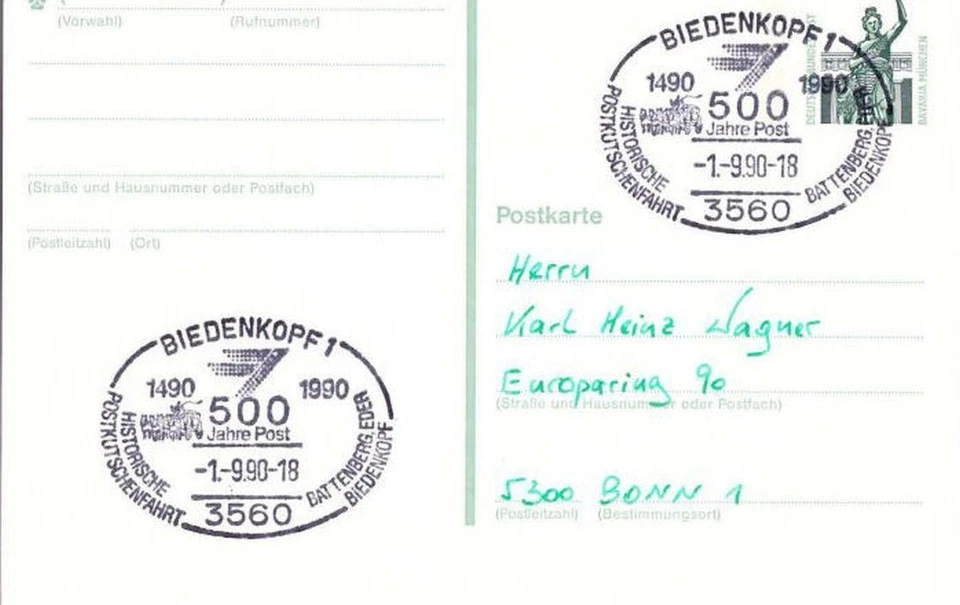 (Vorwahl) (Rufnummer)
(Straße und Hausnummer oder Postfach)
(Postleitzahl) (Ort)
BIEDENKOPF 1
1490 1990
500
Jahre Post
-1.-9.90-18
3560
HISTORISCHE
POSTKUTSCHENFAHRT
BATTENBERG, EDER
BIEDENKOPF
BIEDENKOPF 1
1490 1990
500
Jahre Post
-1.-9.90-18
3560
HISTORISCHE
POSTKUTSCHENFAHRT
BATTENBERG, EDER
BIEDENKOPF
BAVARIA MÜNCHEN
Postkarte
Herrn
Karl Heinz Wagner
Europaring 90
(Straße und Hausnummer oder Postfach)
5300 BONN 1
(Postleitzahl) (Bestimmungsort)